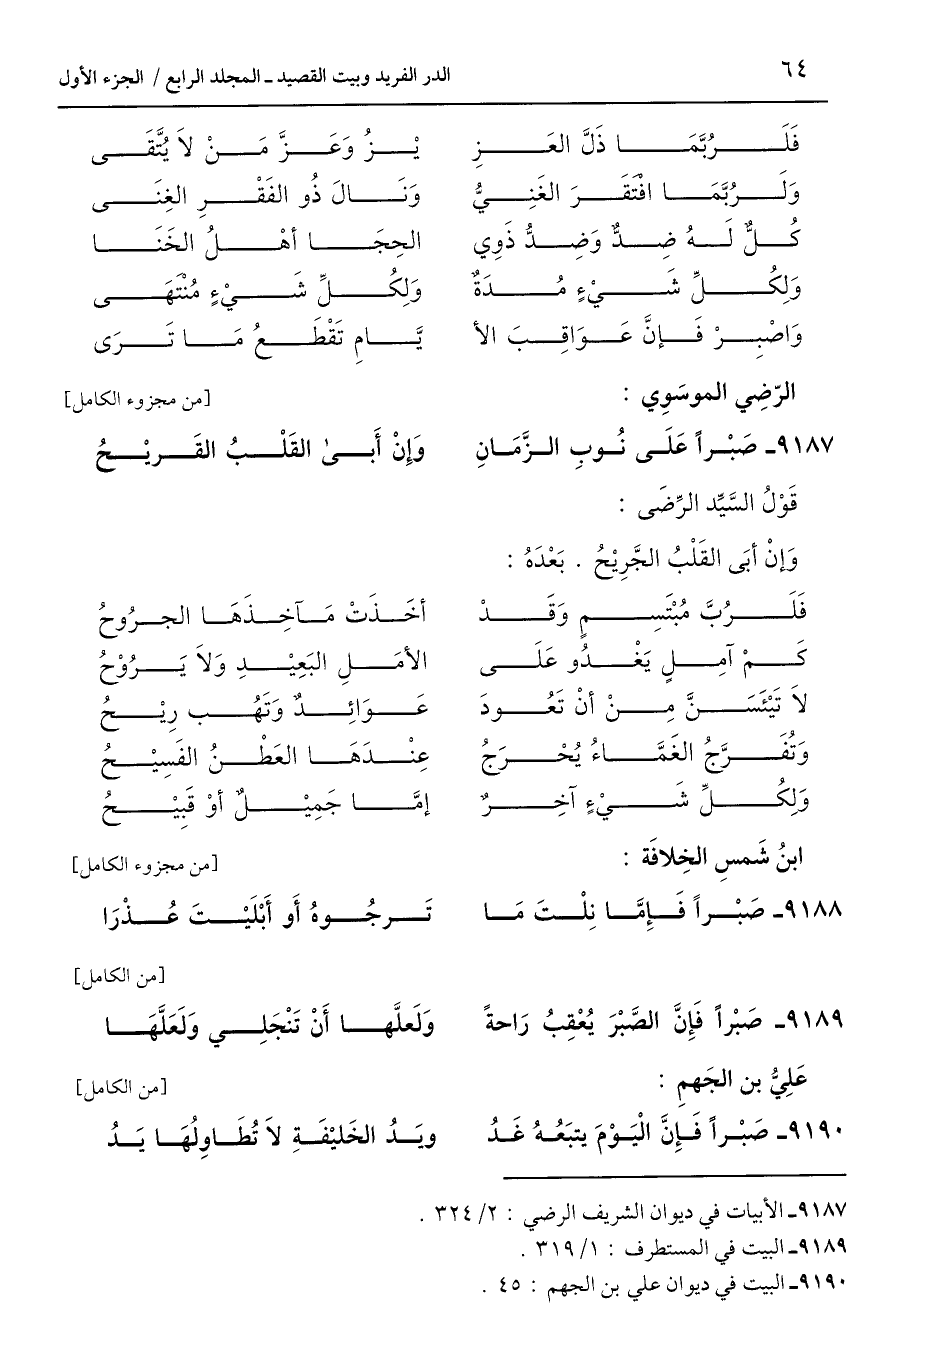 ٦٤ الدر الفريد وبيت القصيد ـ المجلد الرابع / الجزء الأول
فَلَرُبَّمَا ذَلَّ العَزِ يْزُ وَعَزَّ مَنْ لاَ يُتَّقَى
وَلَرُبَّمَا افْتَقَرَ الغَنِيُّ وَنَالَ ذُو الفَقْرِ الغِنَى
كُلٌّ لَهُ ضِدٌّ وَضِدُّ ذَوِي الحِجَا أهْلُ الخَنَا
وَلِكُلِّ شَيْءٍ مُدَةٌ وَلِكُلِّ شَيْءٍ مُنْتَهَى
وَاصْبِرْ فَإنَّ عَوَاقِبَ الأ يَّامِ تَقْطَعُ مَا تَرَى
الرّضِي الموسَوِي : [من مجزوء الكامل]
٩١٨٧ـ صَبْراً عَلَى نُوبِ الزَّمَانِ وَإِنْ أَبىٰ القَلْبُ القَرِيْحُ
قَوْلُ السَّيِّد الرِّضَى :
وَإنْ أبَى القَلْبُ الجَرِيْحُ . بَعْدَهُ :
فَلَرُبَّ مُبْتَسِمٍ وَقَدْ أخَذَتْ مَآخِذَهَا الجروحُ
كَمْ آمِلٍ يَغْدُو عَلَى الأمَلِ البَعِيْدِ وَلاَ يَرُوْحُ
لاَ تَيْئَسَنَّ مِنْ أنْ تَعُودَ عَوَائِدٌ وَتَهُب رِيْحُ
وَتُفَرَّجُ الغَمَّاءُ يُخْرَجُ عِنْدَهَا العَطْنُ الفَسِيْحُ
وَلِكُلِّ شَيْءٍ آخِرٌ إمَّا جَمِيْلٌ أوْ قَبِيْحُ
ابنُ شَمسِ الخِلافَة : [من مجزوء الكامل]
٩١٨٨ـ صَبْراً فَإِمَّا نِلْتَ مَا تَرجُوهُ أَو أَبْلَيْتَ عُذْرَا
[من الكامل]
٩١٨٩ـ صَبْراً فَإِنَّ الصَّبْرَ يُعْقِبُ رَاحةً وَلَعلَّها أَنْ تَنْجَلِي وَلَعَلَّهَا
عَلِيُّ بن الجَهمِ : [من الكامل]
٩١٩٠ـ صَبْراً فَإِنَّ الْيَوْمَ يتبَعُهُ غَدُ ويَدُ الخَلِيْفَةِ لاَ تُطَاوِلُهَا يَدُ
٩١٨٧ـ الأبيات في ديوان الشريف الرضي : ٢/ ٣٢٤ .
٩١٨٩ـ البيت في المستطرف : ١/ ٣١٩ .
٩١٩٠ـ البيت في ديوان علي بن الجهم : ٤٥ .